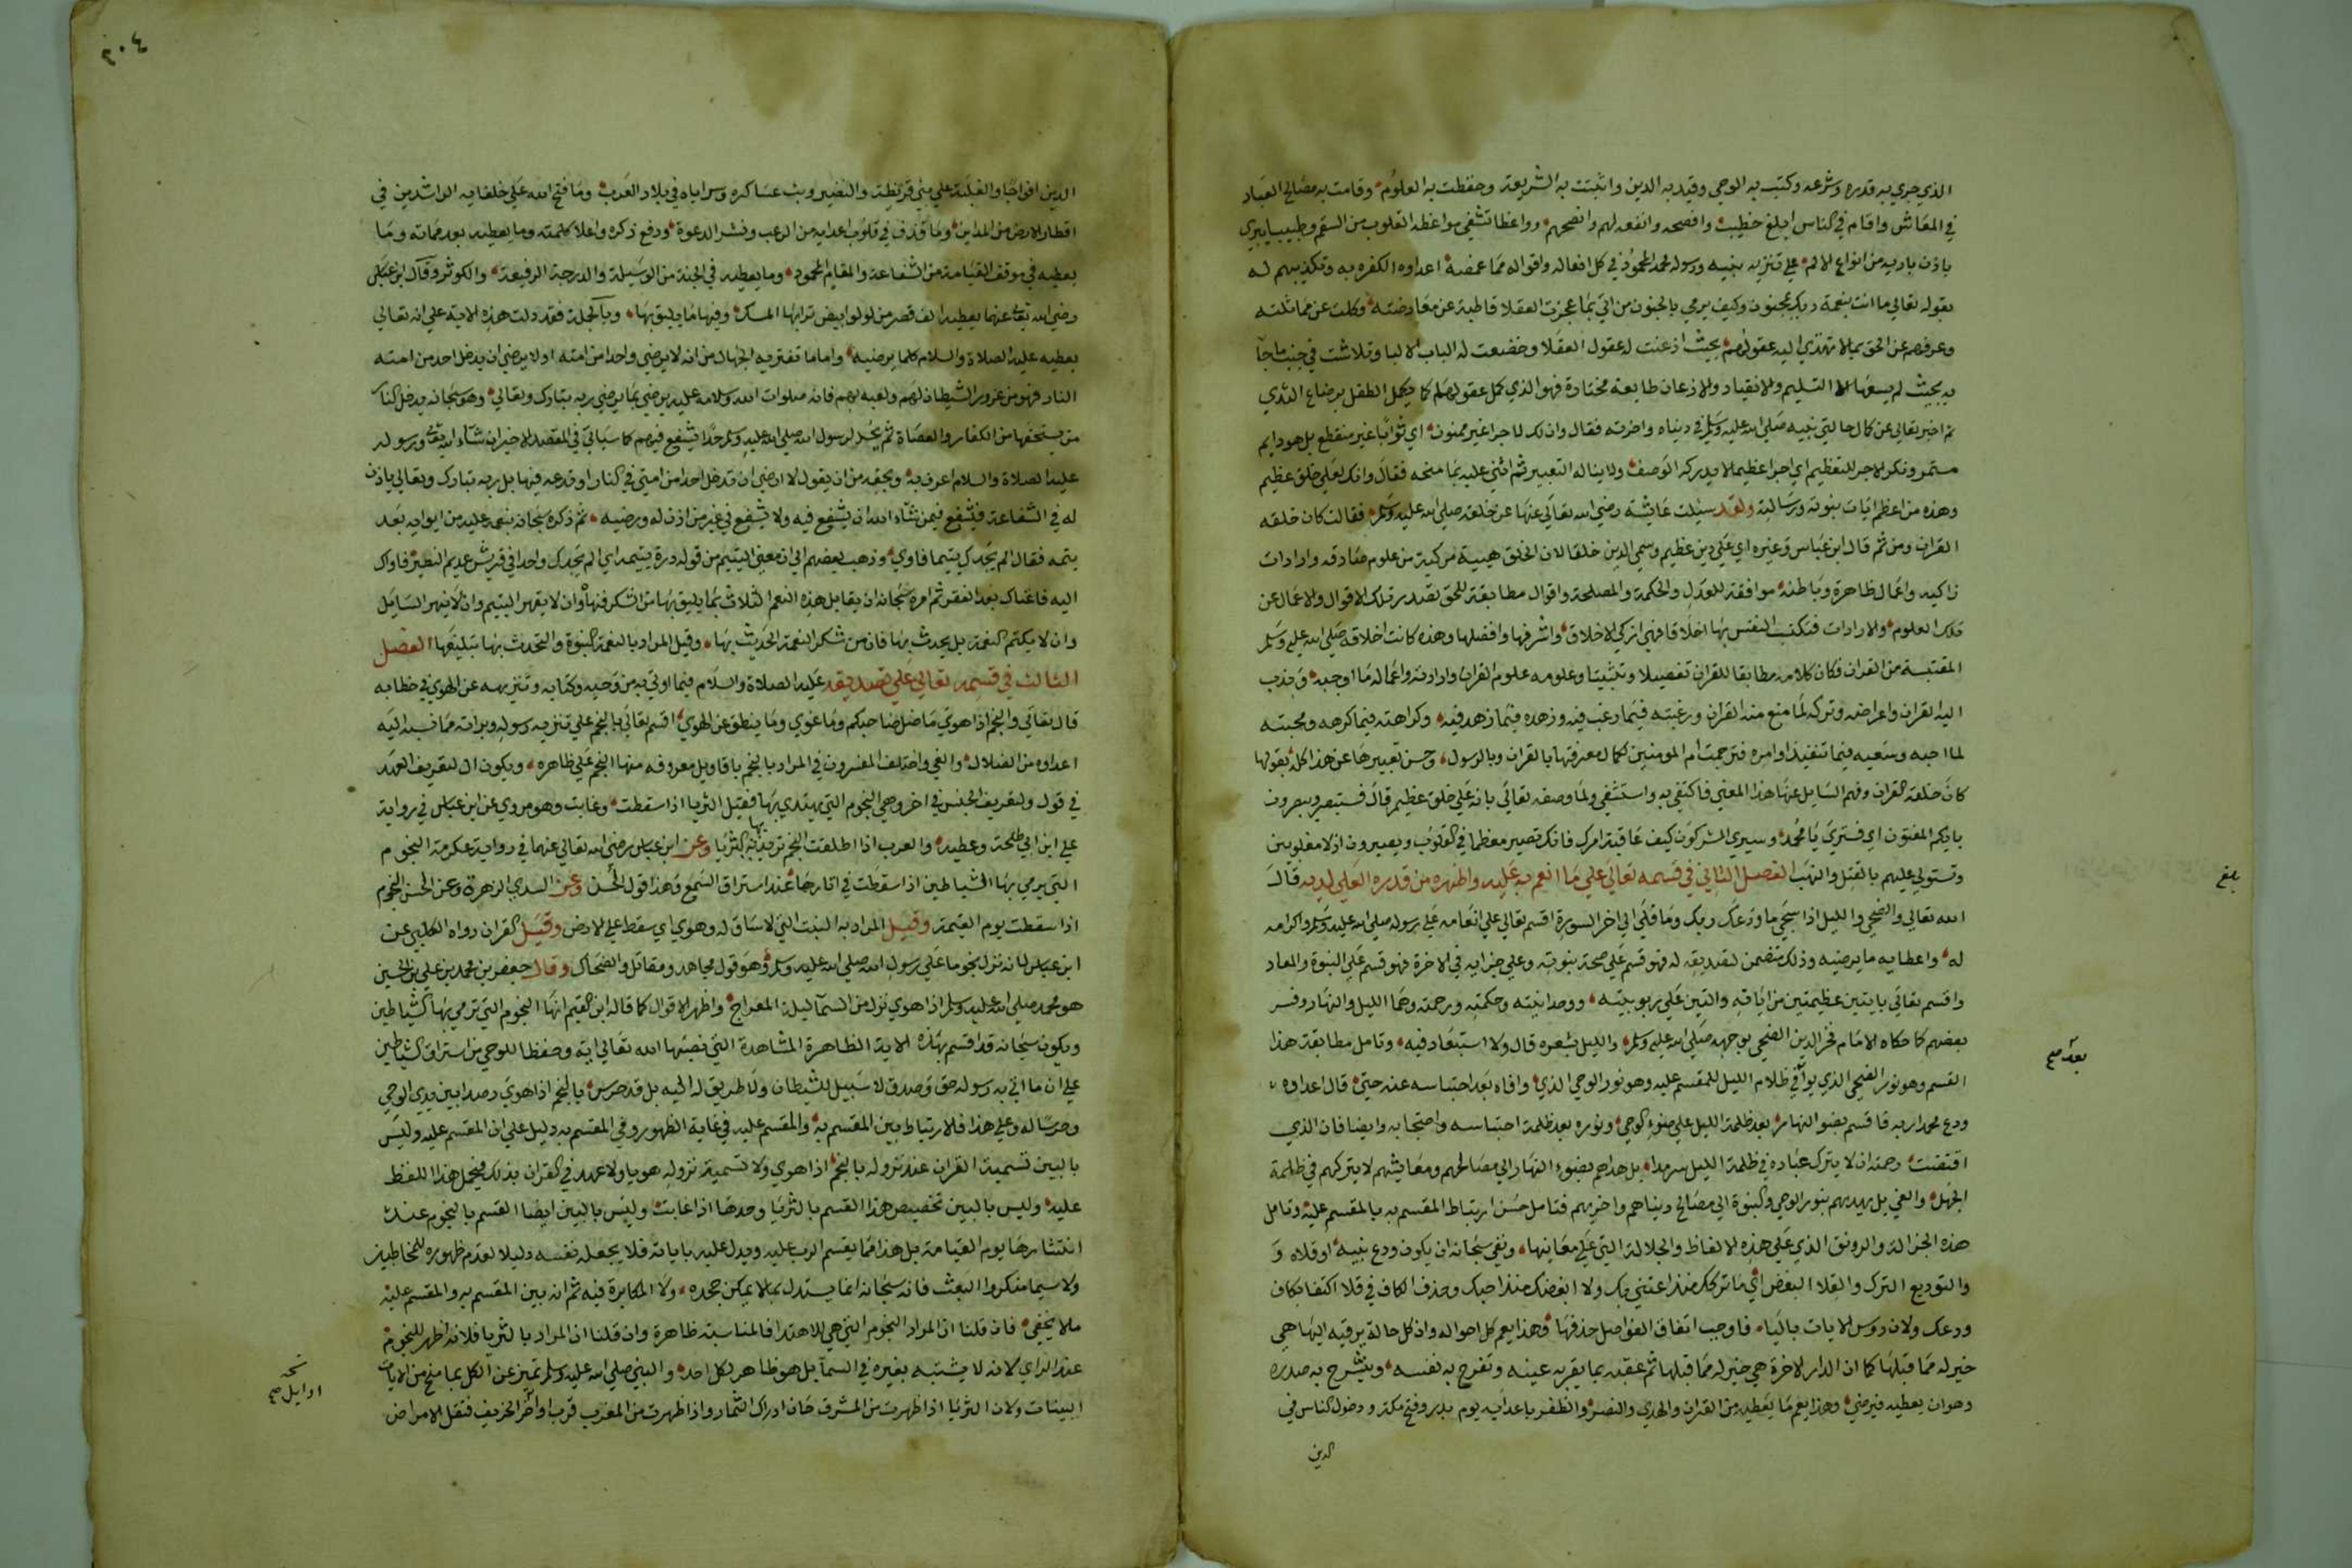 الذي جري به قدره وشرعه وكتب به الوحي وقيد به الدين واثبتت به الشريعة وحفظت به العلوم وقامت به مصالح العباد
في المعاش واقام في الناس ابلغ خطيب وافصحه وانفعه لهم وانصحهم وواعظا تشفي مواعظه القلوب من السقم وطبيبا يبري
باذن باريه من انواع الالم علي تنزيه نبيه ورسوله محمد المحمود في كل افعاله واقواله مما غمضه اعداوه الكفره به وتكذيبهم له
بقوله تعالي ما انت بنعمة ربك بمجنون وكيف يرمي بالجنون من اتي بما عجزت العقلا قاطبة عن معارضته وكلت عن مماثلته
وعرفهم عن الحق بما لا تهتدي اليه عقولهم بحيث اذعنت له عقول العقلا وخضعت له الباب الالبا وتلاشت في جنب ما جآ
به بحيث لم يسعها الا التسليم والانقياد والاذعان طايعة مختارة فهو الذي كمل عقولهم كما يكمل الطفل برضاع الثدي
ثم اخبر تعالي عن كمال حالتي نبيه صلي الله عليه وسلم في دنياه واخرته فقال وان لك لاجرا غير ممنون اي ثوابا غير منقطع بل هو دايم
مستمر ونكر الاجر للتعظيم اي اجرا عظيما لا يدركه الوصف ولا يناله التعبير ثم اثني عليه بما منحه فقال وانك لعلي خلق عظيم
وهذه من اعظم ايات نبوته ورسالته ولقد سئلت عايشة رضي الله تعالي عنها عن خلقه صلي الله عليه وسلم فقالت كان خلقه
القران ومن ثم قال ابن عباس وغيره اي علي دين عظيم وسمي الدين خلقا لان الخلق هيية مركبة من علوم صادقه وارادات
زاكيه واعمال ظاهرة وباطنة موافقة للعدل والحكمة والمصلحة واقوال مطابقة للحق تصدر تلك الاقوال والاعمال عن
تلك العلوم والارادات فتكتسب النفس بها اخلاقا هي ازكي الاخلاق واشرفها وافضلها وهذه كانت اخلاقه صلي الله عليه وسلم
المقتبسة من القران فكان كلامه مطابقا للقران تفصيلا وتبيينا وعلومه علوم القران وارادته واعماله ما اوجبه وندب
اليه القران واعراضه وتركه لما منع منه القران ورغبته فيما رغب فيه وزهده فيما زهد فيه وكراهته فيما كرهه ومحبته
لما احبه وسعيه فيما تنفيذ اوامره فترجمت ام المومنين لكمال معرفتها بالقران وبالرسول وحسن تعبيرها عن هذا كله بقولها
كان خلقه القران وفهم السايل عنها هذا المعني فاكتفي به واستشفي ولما وصفه تعالي بانه علي خلق عظيم قال فستبصر ويبصرون
بايكم المفتون اي فستري يا محمد وسيري المشركون كيف عاقبة امرك فانك تصير معظما في القلوب ويصيرون اذلا مغلوبين
وتستولي عليهم بالقتل والنهب الفصل الثاني في قسمه تعالي علي ما انعم به عليه واظهره من قدره العلي لديه قال
الله تعالي والضحي والليل اذا سجي ما ودعك ربك وما قلي الي اخر السورة اقسم تعالي علي انعامه علي رسوله صلي الله عليه وسلم واكرامه
له واعطايه ما يرضيه وذلك متضمن لتصديقه له فهو قسم علي صحة نبوته وعلي جزايه في الاخرة فهو قسم علي النبوة والمعاد
واقسم تعالي بايتين عظيمتين من اياته دالتين علي ربوبيته ووحدانيته وحكمته ورحمته وهما الليل والنهار وفسر
بعضهم كما حكاه الامام فخر الدين الضحي بوجهه صلي الله عليه وسلم والليل بشعره قال ولا استبعاد فيه وتامل مطابقة هذا
القسم وهو نور الضحي الذي يوافي ظلام الليل للمقسم عليه وهو نور الوحي الذي وافاه بعد احتباسه عنه حتي قال اعداوه
ودع محمدا ربه فاقسم بضو النهار بعد ظلمة الليل علي ضوء الوحي ونوره بعد ظلمة احتباسه واحتجابه وايضا فان الذي
اقتضت رحمته ان لا يترك عباده في ظلمة الليل سرمدا بل هداهم بضوء النهار الي مصالحهم ومعايشهم لا يتركهم في ظلمة
الجهل والغي بل يهديهم بنور الوحي والنبوة الي مصالح دنياهم واخرهم فتامل حسن ارتباط المقسم به بالمقسم عليه وتامل
هذه الجزالة والرونق الذي علي هذه الالفاظ والجلالة التي علي معانيها ونفي سبحانه ان يكون ودع نبيه او قلاه و
والتوديع الترك والقلا البغض اي ما تركك منذ اعتني بك ولا ابغضك منذ احبك وحذف الكاف في قلا اكتفا بكاف
ودعك ولان روس الايات باليا فاوجب اتفاق الفواصل حذفها وهذا يعم كل احواله وان كل حالة يرقيه اليها هي
خير له مما قبلها كما ان الدار الاخرة هي خير له مما قبلها ثم عقبه بما يقر به عينه وتفرح به نفسه وينشرح به صدره
وهو ان يعطيه فيرضي وهذا يعم ما يعطيه من القران والهدي والنصر والظفر باعدايه يوم بدر وفتح مكة ودخول الناس في
الدين
بلغ
بعد صح
٢٠٤
الدين افواجا والغلبة علي بني قريظة والنضير وبث عساكره وسراياه في بلاد العرب وما فتح الله علي خلفايه الراشدين في
اقطار الارض من المداين وما قذف في قلوب اعدايه من الرعب ونشر الدعوة ورفع ذكره واعلا كلمته وما يعطيه بعد مماته وما
يعطيه في موقف القيامة من الشفاعة والمقام المحمود وما يعطيه في الجنة من الوسيلة والدرجة الرفيعة والكوثر وقال ابن عباس
رضي الله تعالي عنهما يعطيه الف قصر من لولو ابيض ترابها المسك وفيها ما يليق بها وبالجملة فقد دلت هذه الاية علي انه تعالي
يعطيه عليه الصلاة والسلام كلما يرضيه واما ما تفتريه الجهال من انه لا يرضي واحدا من امته او لا يرضي ان يدخل احد من امته
النار فهو من غرور الشيطان لهم ولعبه بهم فانه صلوات الله وسلامه عليه يرضي بما يرضي ربه تبارك وتعالي وهو سبحانه يدخل النار
من يستحقها من الكفار والعصاة ثم يحد لرسول الله صلي الله عليه وسلم حدا يشفع فيهم كما سياتي في المقصد الاخير ان شآ الله تعالي ورسوله
عليه الصلاة والسلام اعرف به وبحقه من ان يقول لا ارضي ان تدخل احدا من امتي في النار او تدعه فيها بل ربه تبارك وتعالي ياذن
له في الشفاعة فيشفع فيمن شآ الله ان يشفع فيه ولا يشفع في غير من اذن له ورضيه ثم ذكره سبحانه بنعمه عليه من ايوايه بعد
يتمه فقال الم يجدك يتيما فاوي وذهب بعضهم الي ان معني اليتيم من قوله درة يتيمة اي الم يجدك واحدا في قريش عديم النظير فاواك
اليه فاغناك بعد الفقر ثم امره سبحانه ان يقابل هذه النعم الثلاث بما يليق بها من الشكر فنهاه وان لا يقهر اليتيم وان لا ينهر السايل
وان لا يكتم النعمة بل يحدث بها فان من شكر النعمة الحديث بها وقيل المراد بالنعمة النبوة والتحدث بها تبليغها الفصل
الثالث في قسمه تعالي علي تصديقه عليه الصلاة والسلام فيما اوتي به من وحيه وكتابه وتنزيهه عن الهوي في خطابه
قال تعالي والنجم اذا هوي ما ضل صاحبكم وما غوي وما ينطق عن الهوي اقسم تعالي بالنجم علي تنزيه رسوله وبراته مما نسبه اليه
اعداوه من الضلال والغي واختلف المفسرون في المراد بالنجم باقاويل معروفه منها النجم علي ظاهره ويكون ال لتعريف العهد
في قول ولتعريف الجنس في اخر وهي النجوم التي يهتدي بها فقيل الثريا اذا سقطت وغابت وهو مروي عن ابن عباس في رواية
علي ابن ابي طلحة وعطيه والعرب اذا اطلقت النجم تريد به الثريا وعن ابن عباس رضي الله تعالي عنهما في رواية عكرمة النجوم
التي يرمي بها الشياطين اذا سقطت في اثارها عند استراق السمع وهذا قول الحسن وعن السدي الزهرة وعن الحسن النجوم
اذا سقطت يوم القيمة وقيل المراد به النبت التي لا ساق له وهوي اي سقط علي الارض وقيل القران رواه الكلبي عن
ابن عباس لانه نزل نجوما علي رسول الله صلي الله عليه وسلم وهو قول مجاهد ومقاتل والضحاك وقال جعفر بن محمد بن علي بن الحسين
هو محمد صلي الله عليه وسلم اذا هوي نزل من السمآ ليلة المعراج واظهر الاقوال كما قاله ابن القيم انها النجوم التي ترمي بها الشياطين
ويكون سبحانه قد اقسم بهذه الاية الظاهرة المشاهدة التي نصبها الله تعالي اية وحفظا للوحي من استراق الشياطين
علي ان ما اتي به رسوله حق وصدق لا سبيل للشيطان ولا طريق له اليه بل قد حرس بالنجم اذا هوي رصدا بين يدي الوحي
وحرسا له وعلي هذا فالارتباط بين المقسم به والمقسم عليه في غاية الظهور وفي المقسم به دليل علي ان المقسم عليه وليس
بالبين تسمية القران عند نزوله بالنجم اذا هوي ولا تسمية نزوله هويا ولا عهد في القران بذلك فيحمل هذا اللفظ
عليه وليس بالبين تخصيص هذا القسم بالثريا وحدها اذا غابت وليس بالبين ايضا القسم بالنجوم عند
انتشارها يوم القيامة بل هذا مما يقسم الرب عليه ويدل عليه باياته فلا يجعله نفسه دليلا لعدم ظهوره للمخاطبين
ولا سيما منكروا البعث فانه سبحانه انما يستدل بما لا يمكن جحده ولا المكابرة فيه ثم ان بين المقسم به والمقسم عليه
ما لا يخفي فان قلنا ان المراد النجوم التي هي للاهتدا فالمناسبة ظاهرة وان قلنا ان المراد بالثريا فلانه اظهر للنجوم
عند الراي لانه لا يشتبه بغيره في السمآ بل هو ظاهر لكل احد والنبي صلي الله عليه وسلم تميز عن الكل بما منح من الايات
البينات ولان الثريا اذا ظهرت من المشرق حان ادراك الثمار واذا ظهرت من المغرب قرب اواخر الخريف فتقل الامراض
اوايل صح